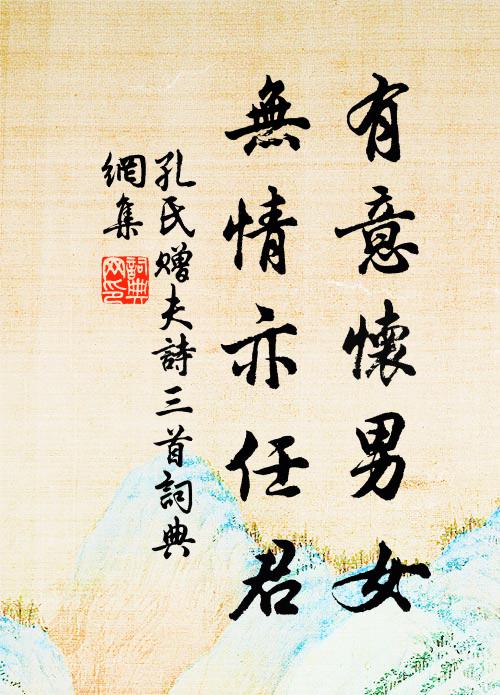 有意懷男女
無情亦任君
孔氏贈夫詩三首詞典
網集
詞典网印